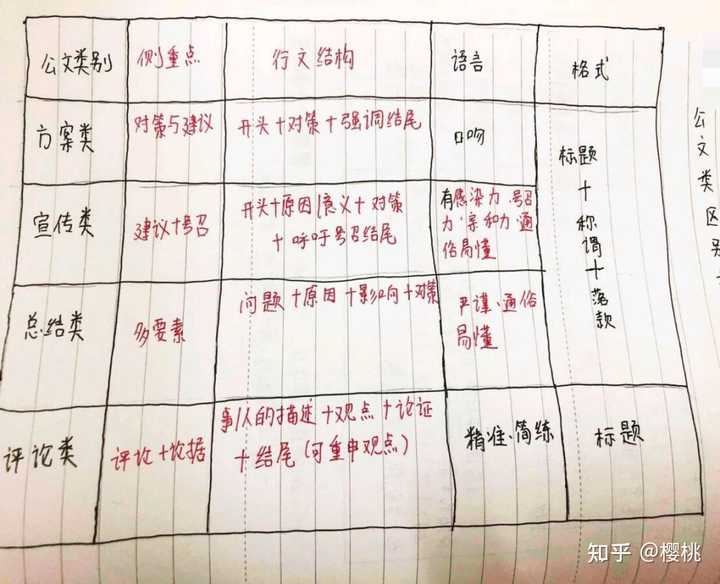 公文类别 侧重点 行文结构 语言 格式
方案类 对策与建议 开头+对策+强调结尾 口吻
宣传类 建议+号召 开头+原因|意义+对策
+呼吁号召结尾
有感染力·号召
力·亲和力·通
俗易懂
总结类 多要素 问题+原因+影响+对策 严谨·通俗
易懂
标题
+
称谓
+
落款
评论类 评论+论据 事/人的描述+观点+论证
+结尾(可重申观点)
精准·简练 标题
公文类区别
知乎 @樱桃